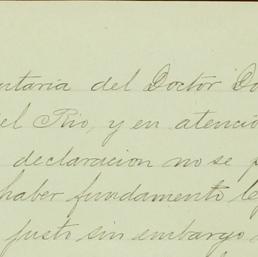 ntaria del Doctor Do
el Rio, y en atencio
declaracion no se p
haber fundamento le
justo sin embargo